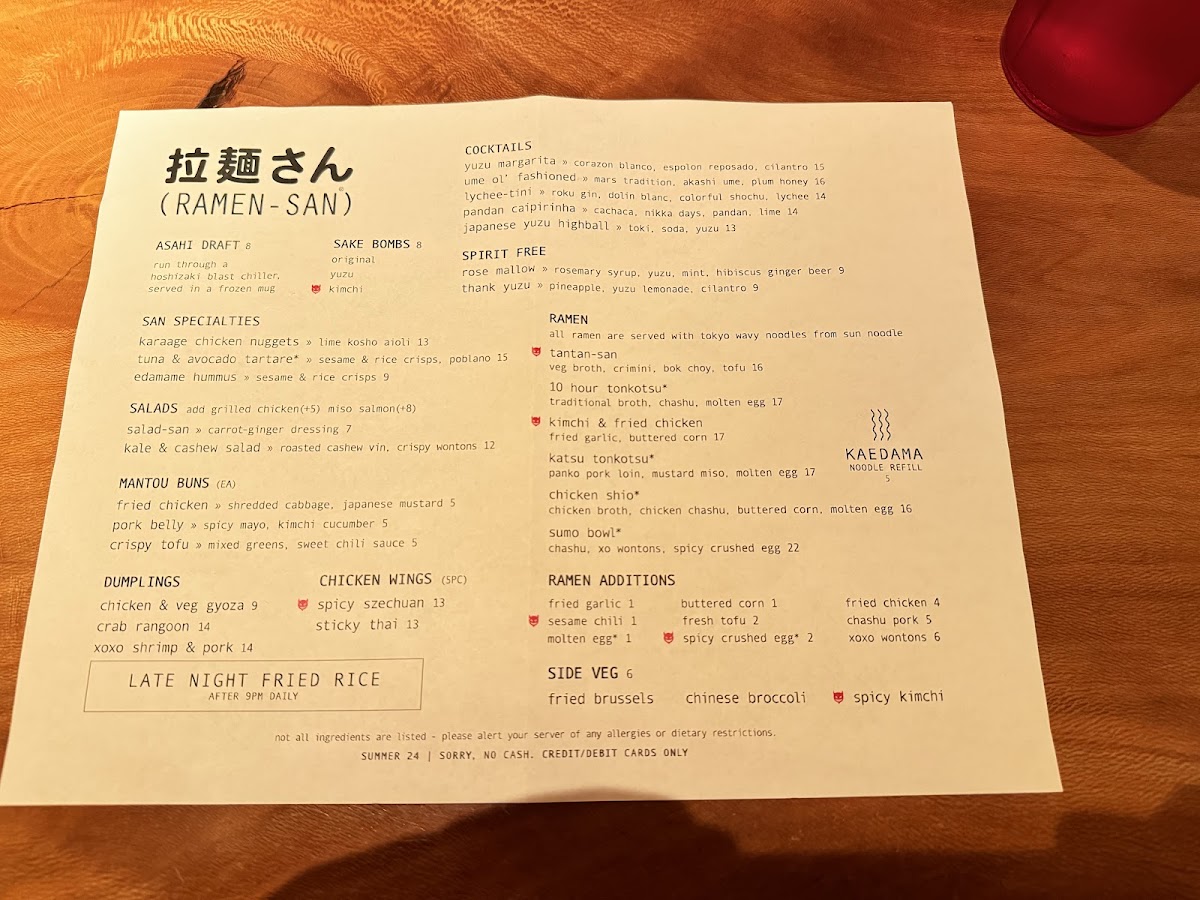 拉麺さん
(RAMEN-SAN)®
ASAHI DRAFT 8
run through a
hoshizaki blast chiller,
served in a frozen mug
SAKE BOMBS 8
original
yuzu
kimchi
COCKTAILS
yuzu margarita » corazon blanco, espolon reposado, cilantro 15
ume ol' fashioned » mars tradition, akashi ume, plum honey 16
lychee-tini » roku gin, dolin blanc, colorful shochu, lychee 14
pandan caipirinha » cachaca, nikka days, pandan, lime 14
japanese yuzu highball » toki, soda, yuzu 13
SPIRIT FREE
rose mallow » rosemary syrup, yuzu, mint, hibiscus ginger beer 9
thank yuzu » pineapple, yuzu lemonade, cilantro 9
SAN SPECIALTIES
karaage chicken nuggets » lime kosho aioli 13
tuna & avocado tartare* » sesame & rice crisps, poblano 15
edamame hummus » sesame & rice crisps 9
SALADS add grilled chicken(+5) miso salmon(+8)
salad-san » carrot-ginger dressing 7
kale & cashew salad » roasted cashew vin, crispy wontons 12
MANTOU BUNS (EA)
fried chicken » shredded cabbage, japanese mustard 5
pork belly » spicy mayo, kimchi cucumber 5
crispy tofu » mixed greens, sweet chili sauce 5
DUMPLINGS
chicken & veg gyoza 9
crab rangoon 14
xoxo shrimp & pork 14
CHICKEN WINGS (5PC)
spicy szechuan 13
sticky thai 13
LATE NIGHT FRIED RICE
AFTER 9PM DAILY
RAMEN
all ramen are served with tokyo wavy noodles from sun noodle
tantan-san
veg broth, crimini, bok choy, tofu 16
10 hour tonkotsu*
traditional broth, chashu, molten egg 17
kimchi & fried chicken
fried garlic, buttered corn 17
katsu tonkotsu*
panko pork loin, mustard miso, molten egg 17
chicken shio*
chicken broth, chicken chashu, buttered corn, molten egg 16
sumo bowl*
chashu, xo wontons, spicy crushed egg 22
KAEDAMA
NOODLE REFILL
5
RAMEN ADDITIONS
fried garlic 1 buttered corn 1 fried chicken 4
sesame chili 1 fresh tofu 2 chashu pork 5
molten egg* 1 spicy crushed egg* 2 xoxo wontons 6
SIDE VEG 6
fried brussels chinese broccoli spicy kimchi
not all ingredients are listed - please alert your server of any allergies or dietary restrictions.
SUMMER 24 | SORRY, NO CASH. CREDIT/DEBIT CARDS ONLY